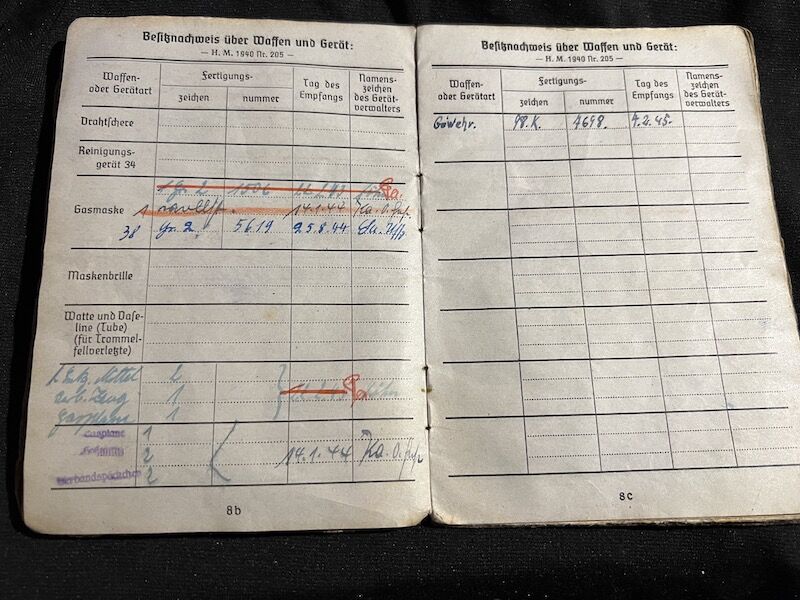 Besitznachweis über Waffen und Gerät:
— H. M. 1940 Nr. 205 —
Waffen- oder Gerätart
Fertigungs-
zeichen
nummer
Tag des Empfangs
Namens-zeichen des Gerät-verwalters
Drahtschere
Reinigungs-
gerät 34
Gr. 2 1506
Gasmaske 1 14.1.44
38 Gr. 2. 5619 25.8.44 Uffz
Maskenbrille
Watte und Vase-
line (Tube)
(für Trommel-
fellverletzte)
2
1
Gasplane 1
Gasplane 1
2 14.1.44
Verbandspäckchen 2
8b
Besitznachweis über Waffen und Gerät:
— H. M. 1940 Nr. 205 —
Waffen- oder Gerätart
Fertigungs-
zeichen
nummer
Tag des Empfangs
Namens-zeichen des Gerät-verwalters
Gewehr. 98.K. 4698. 4.2.45.
8c